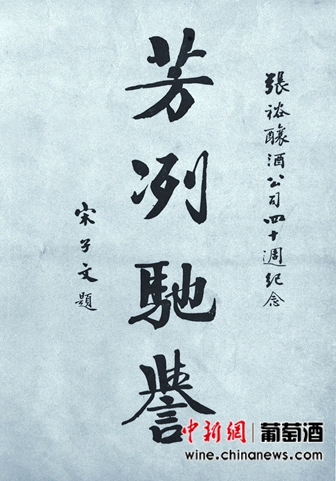 張裕釀酒公司四十週紀念
芳冽馳譽
宋子文題
中新網 葡萄酒
wine.chinanews.com